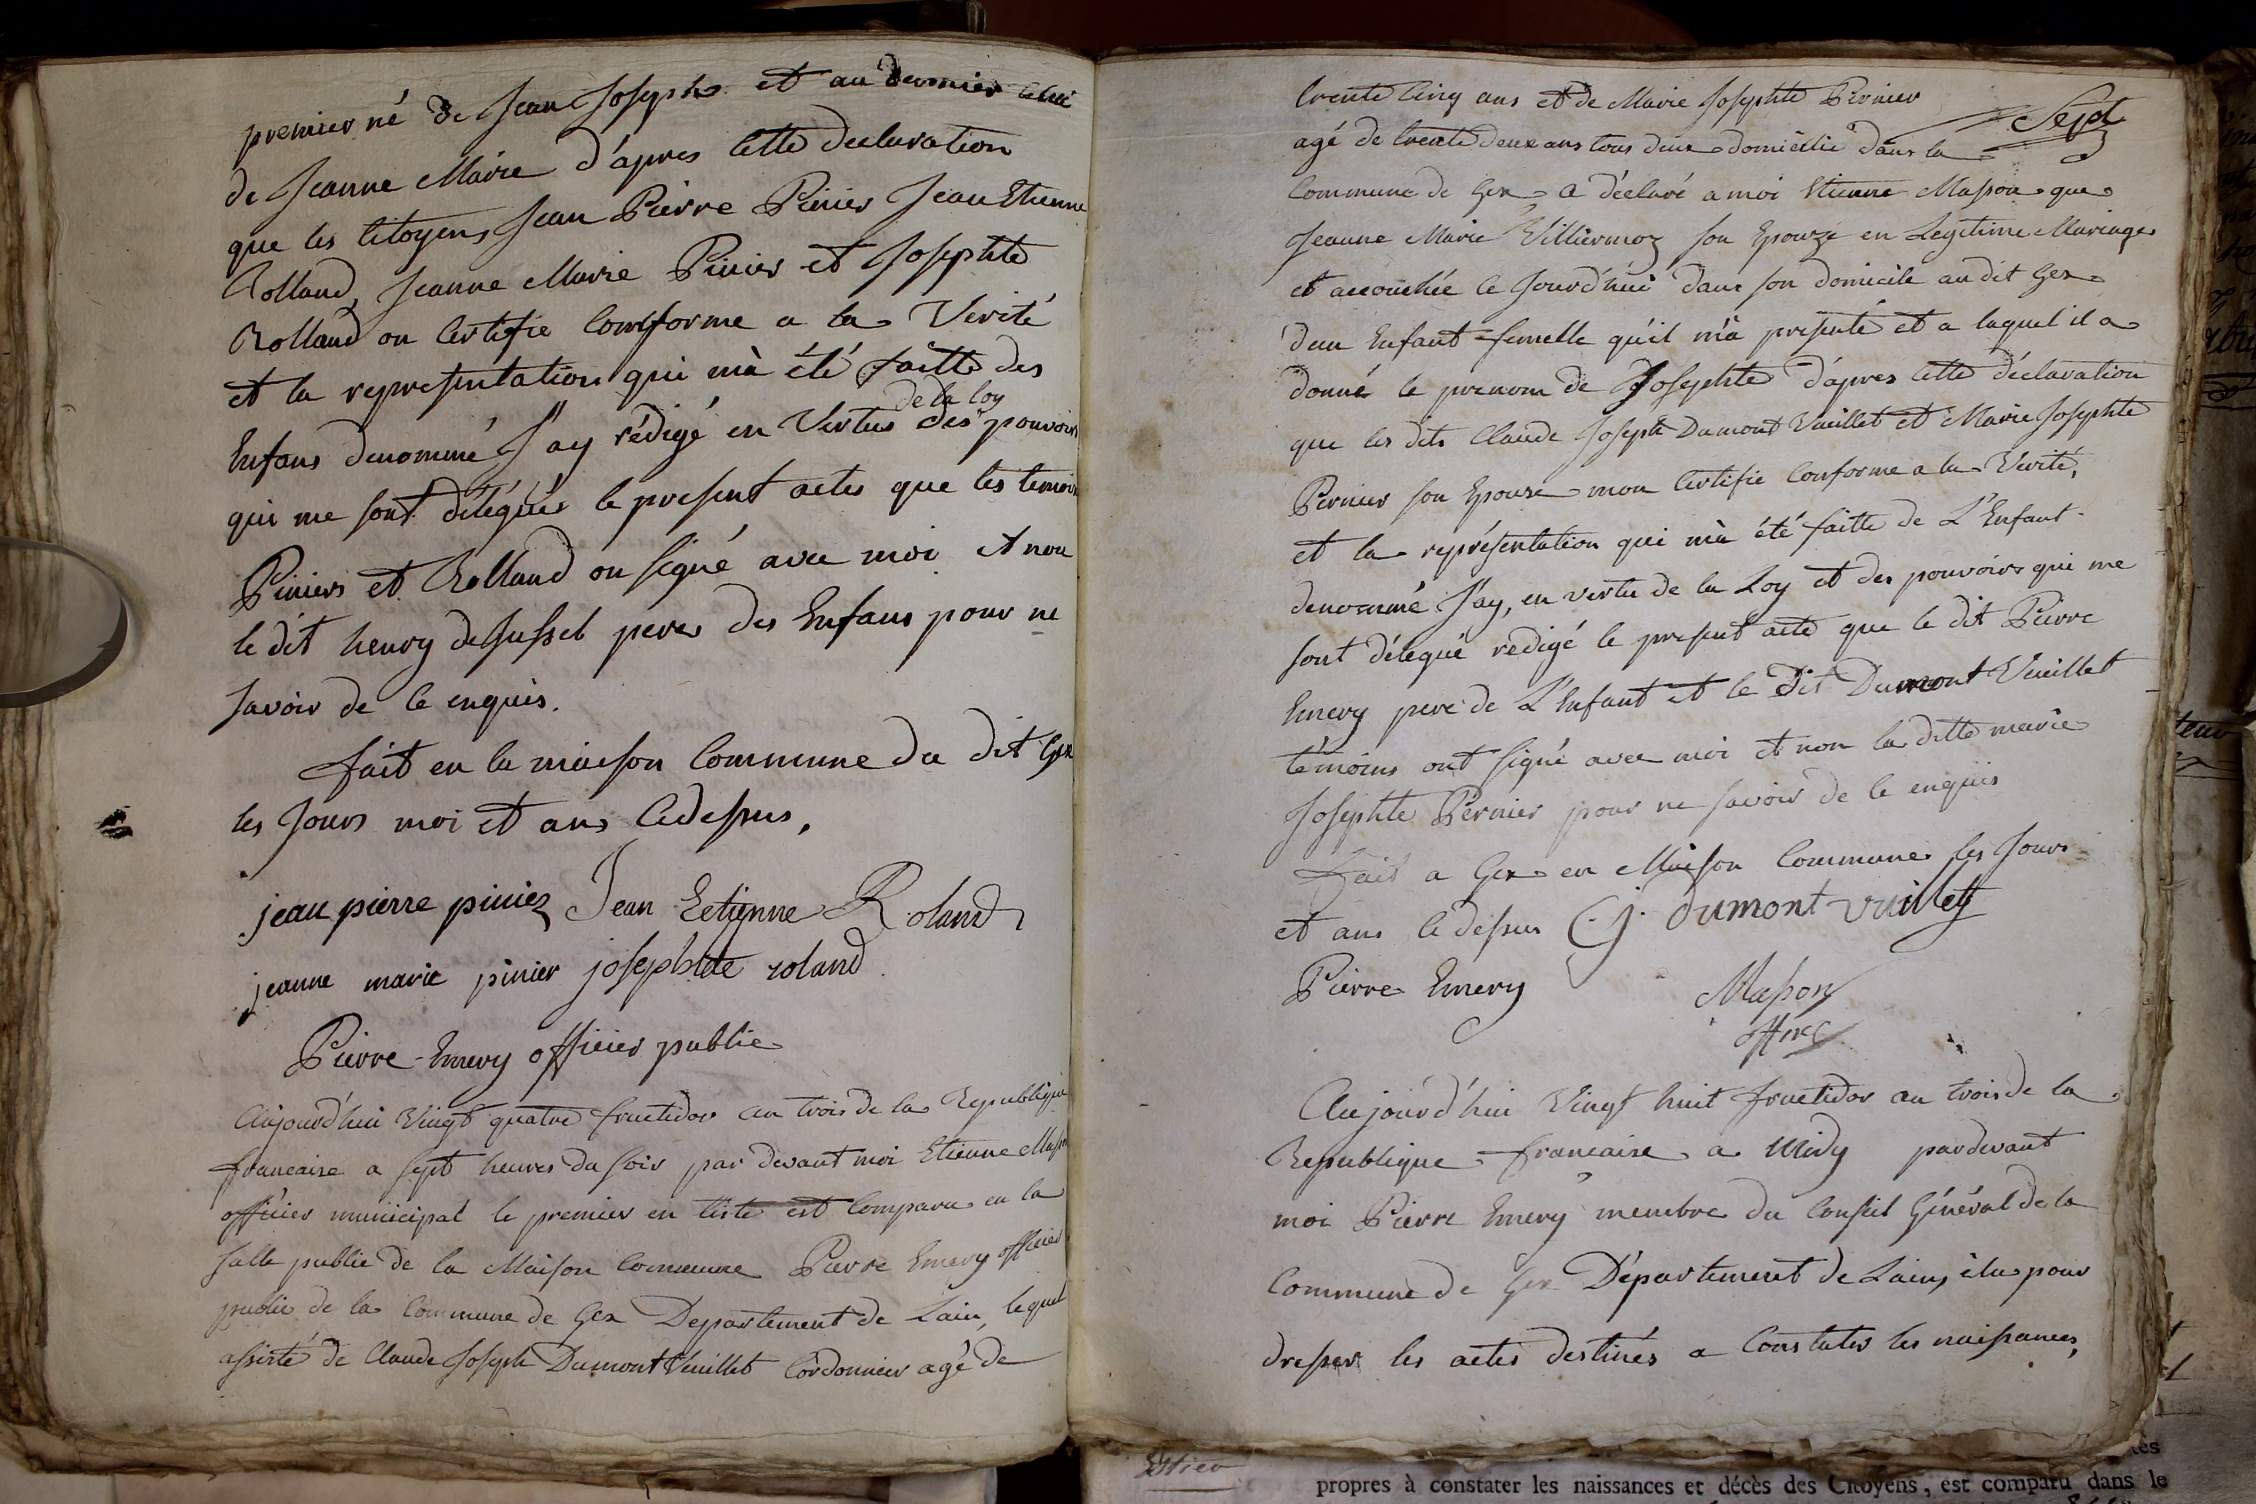 premier né de Jean Joseph et au dernier celui
de Jeanne Marie d'apres Cette declaration
que les Citoyens Jean Pierre Pinier Jean Etienne
Rolland, Jeanne Marie Pinier et Josephte
Rolland on Certifie Comforme a la Verité
et la representation qui m'à été faitte des
de la loy
Enfans denommé J'ay rédigé en Vertus des pouvoirs
qui me sont délégués le present actes que les temoins
Piniers et Rolland on signé avec moi et non
le dit henry dessussel peres des Enfans pour ne
savoir de Ce enquis.
fait en la maison Commune du dit Gex
les Jours moi et ans Cidessus,
jean pierre pinier Jean Eetienne Roland
jeanne marie pinier josephtte roland
Pierre Emery officier public
Aujourd'hui Vingt quatre fructidor an trois de la Republique
francaise a sept heures du soir par devant moi Etienne Masson
officier municipal le premier en liste est Comparu en la
salle public de la Maison Commune Pierre Emery officier
public de la Commune de Gex Departement de Lain, lequel
assisté de Claude Joseph Dumont Vuillet Cordonnier agé de
trente Cinq ans et de Marie Josephte Pernier
Sept
agé de trente deux ans tous deux domicilié dans la
Commune de Gex a déclaré a moi Etienne Masson que
Jeanne Marie Villiermoz son Epouze en Legitime Mariage
et accouchée Ce Jourd'hui dans son domicile au dit Gex
d'un Enfant femelle qu'il m'à presenté et a laquel il a
donné le prenom de Josephte d'apres Cette déclaration
que les dits Claude Joseph Dumont Vuillet et Marie Josephte
Pernier son Epouse mon Certifie Conforme a la Verité,
et la représentation qui m'à été faitte de L'Enfant
denommé J'ay, en vertu de la Loy et des pouvoirs qui me
sont délégué redigé le present acte que le dit Pierre
Emery pere de L'Enfant et le dit Dumont Vuillet
témoins ont signé avec moi et non la ditte marie
Josephte Pernier pour ne savoir de Ce enquis
Fait a Gex en Maison Commune les Jours
et ans Cidessus C. j. dumont vuillet
Pierre Emery Masson
offire
Aujourd'hui Vingt huit fructidor an trois de la
Republique francaise a Midy pardevant
moi Pierre Emery membre du Conseil Général de la
Commune de Gex Département de Lain, élu pour
dresser les actes destinés a Constater les naissances,
propres à constater les naissances et décès des Citoyens, est comparu dans le